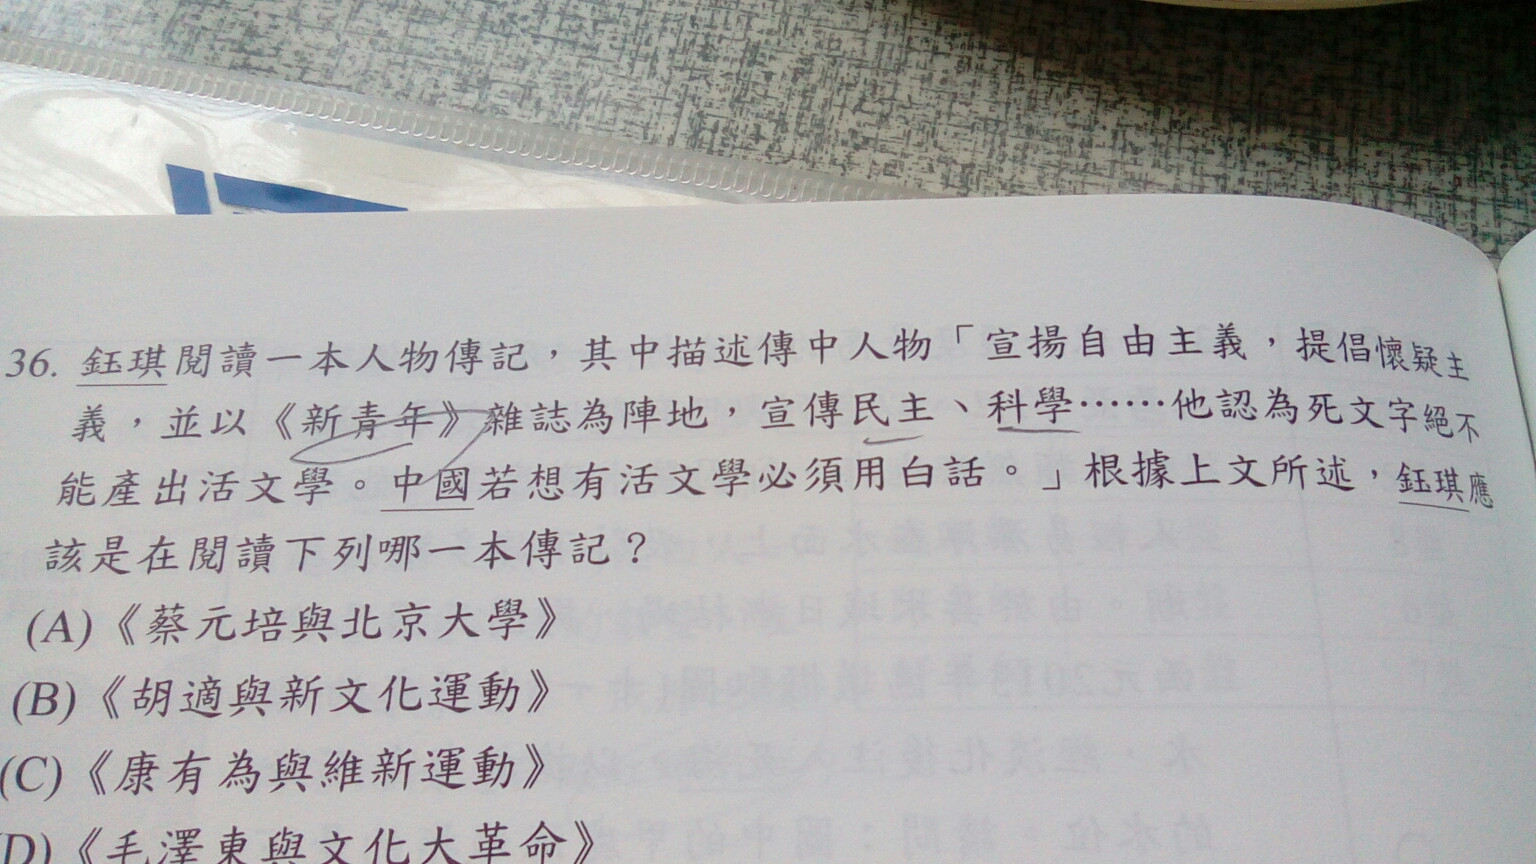 36. 鈺琪閱讀一本人物傳記，其中描述傳中人物「宣揚自由主義，提倡懷疑主
義，並以《新青年》雜誌為陣地，宣傳民主、科學……他認為死文字絕不
能產出活文學。中國若想有活文學必須用白話。」根據上文所述，鈺琪應
該是在閱讀下列哪一本傳記？
(A)《蔡元培與北京大學》
(B)《胡適與新文化運動》
(C)《康有為與維新運動》
(D)《毛澤東與文化大革命》